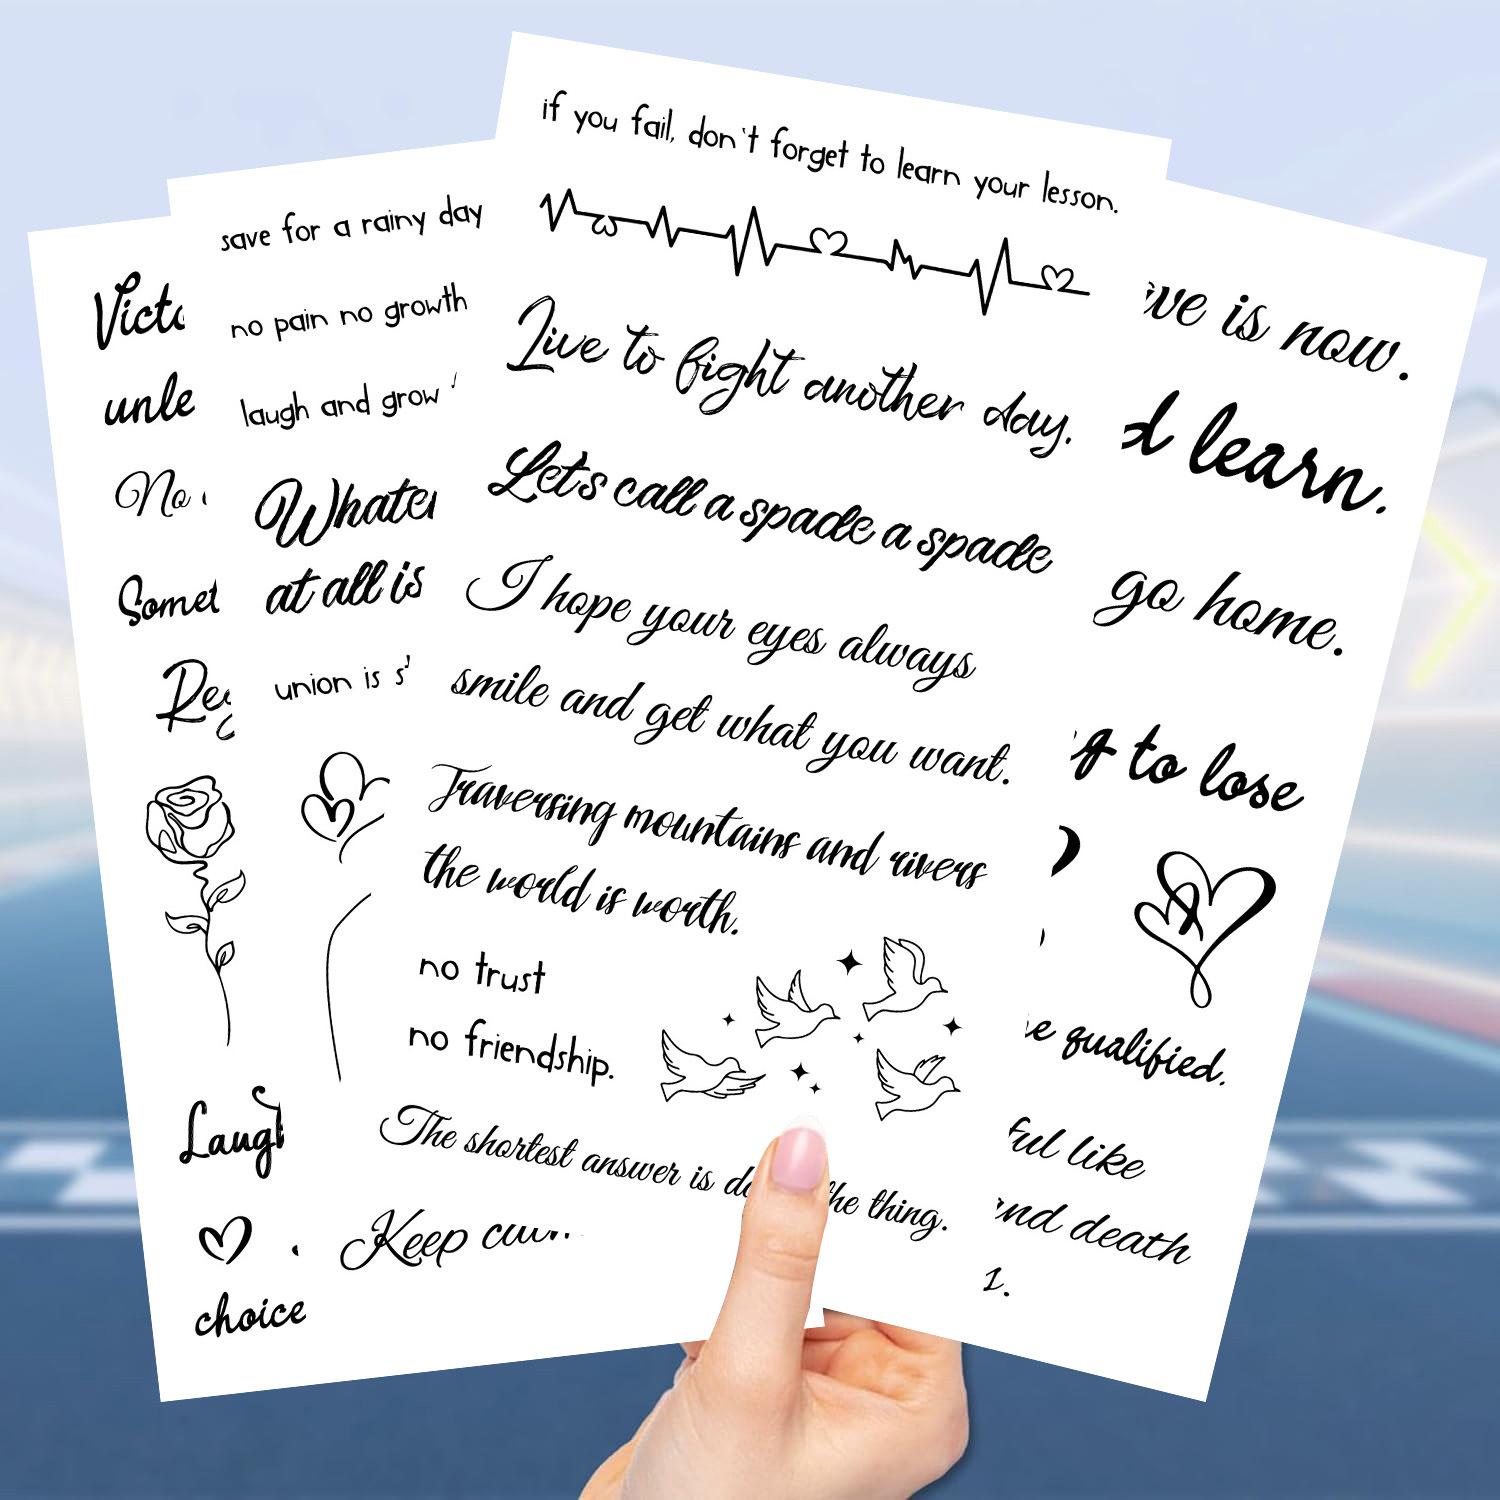 if you fail, don't forget to learn your lesson.
Live to fight another day.
Lets call a spade a spade
I hope your eyes always
smile and get what you want.
Traversing mountains and rivers
the world is worth.
no trust
no friendship.
The shortest answer is the thing.
save for a rainy day
no pain no growth
laugh and grow
at all is
union is
Keep
No
choice
is now.
learn.
go home.
to lose
qualified.
like
death